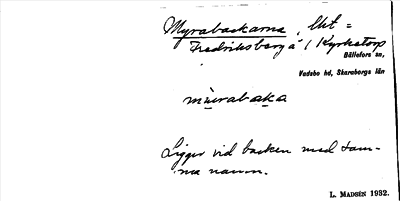 Myrabackarna, lht =
Fredriksberg å 1 Kyrketorp
Bällefors sn,
Vadsbo hd, Skaraborgs län
mùrabaka
Ligger vid backen med sam-
ma namn.
L. MADSÉN 1932.